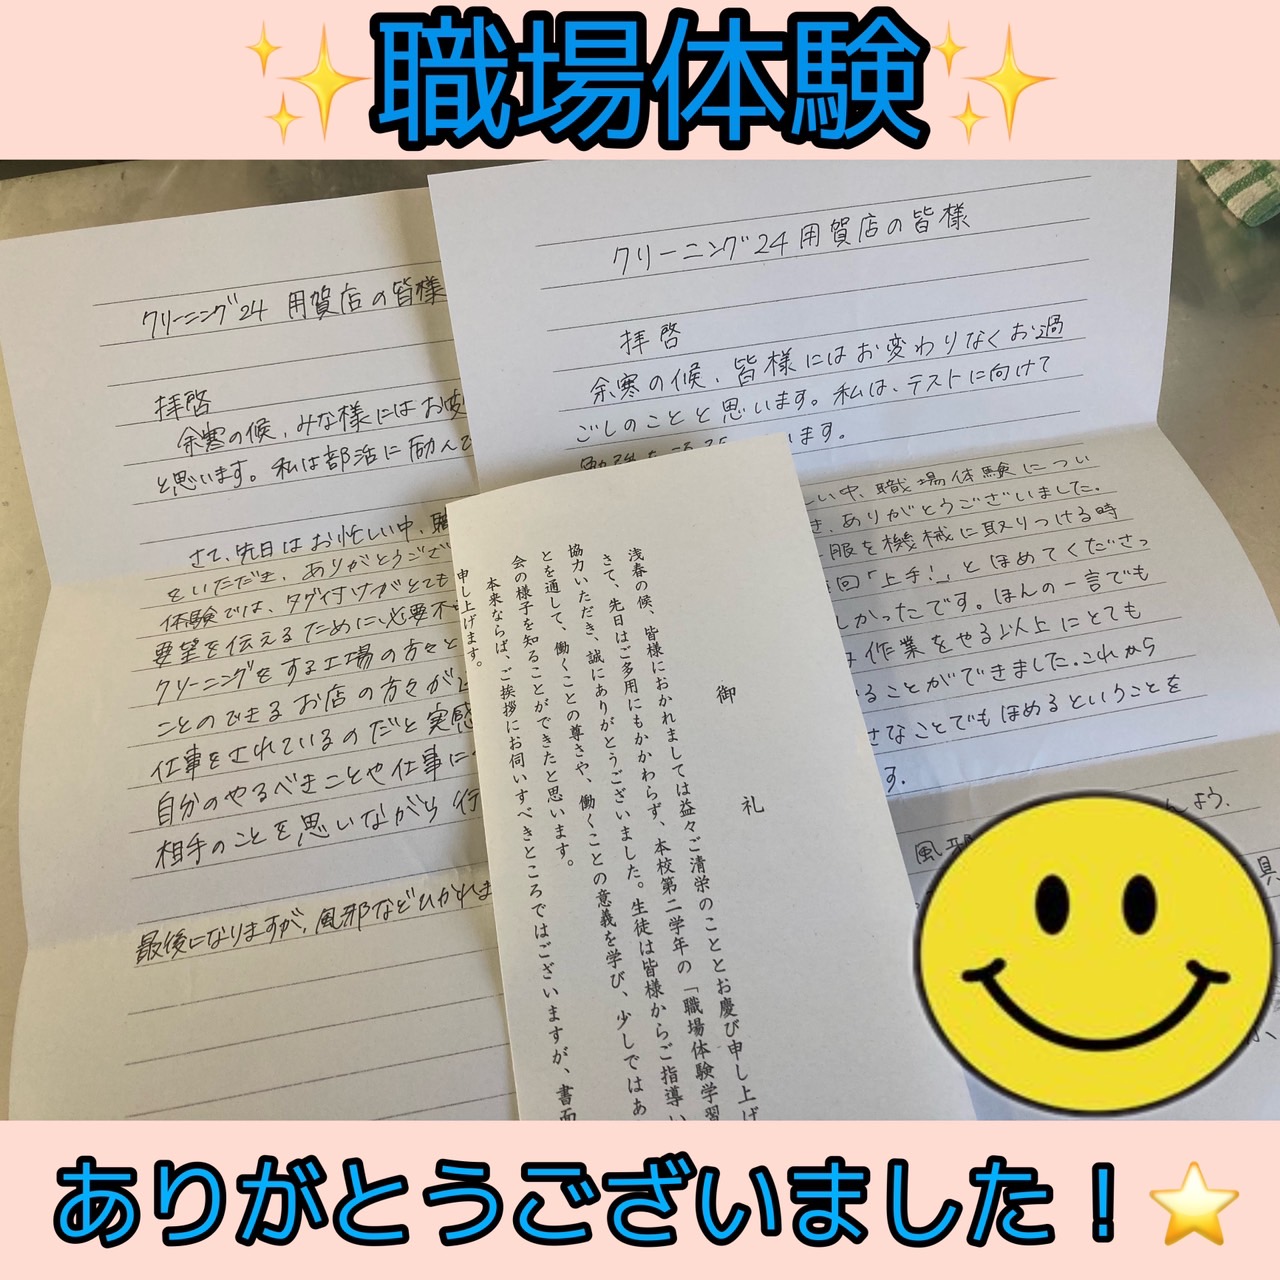 職場体験
クリーニング24 用賀店の皆様
拝啓
余寒の候、みな様にはお変
と思います。私は部活に励んで
さて、先日はお忙しい中、職
をいただき、ありがとうござ
体験では、タグ付けがとても
要望を伝えるために、必要不
クリーニングをする工場の方々と
ことのできるお店の方々が
仕事をされているのだと実感
自分のやるべきことや仕事に
相手のことを思いながら行
最後になりますが、風邪などひかれま
クリーニング24 用賀店の皆様
拝啓
余寒の候、皆様にはお変わりなくお過
ごしのことと思います。私は、テストに向けて
います。
い中、職場体験につい
き、ありがとうございました。
服を機械に取りつける時
回「上手!」とほめてくださっ
しかったです。ほんの一言でも
作業をやる以上にとても
ることができました。これから
さなことでもほめるということを
す。
よう、
風邪
御礼
浅春の候、皆様におかれましては益々ご清栄のこととお慶び申し上げ
さて、先日はご多用にもかかわらず、本校第二学年の「職場体験学習
協力いただき、誠にありがとうございました。生徒は皆様からご指導い
とを通して、働くことの尊さや、働くことの意義を学び、少しではあ
会の様子を知ることができたと思います。
本来ならば、ご挨拶にお伺いすべきところではございますが、書面
申し上げます。
ありがとうございました！